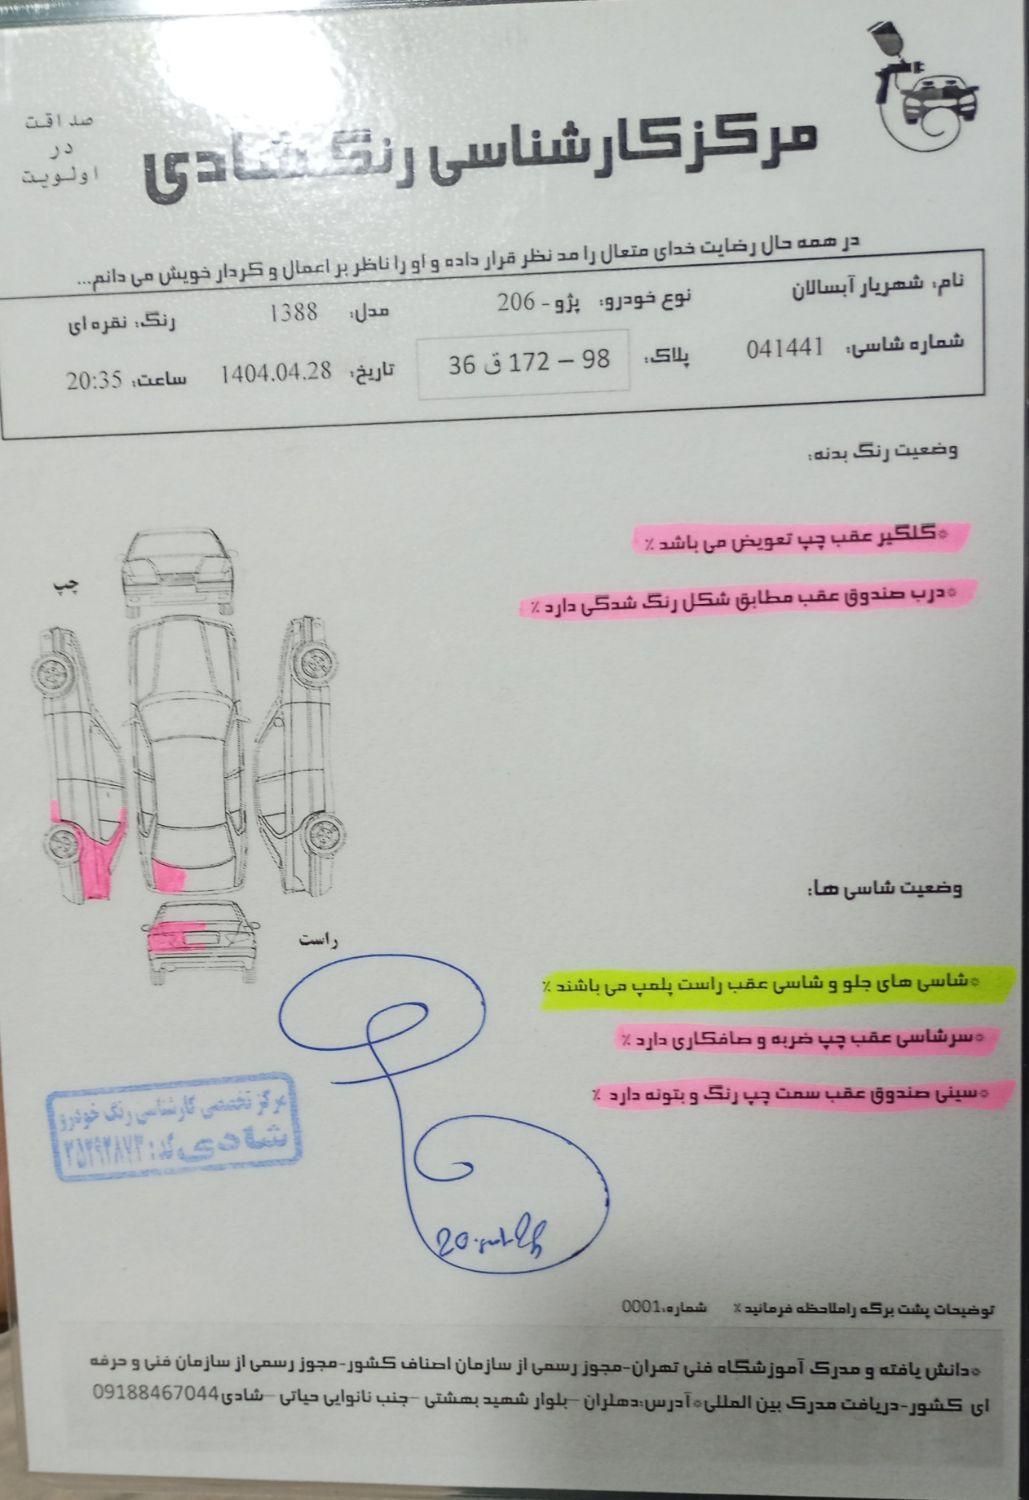 صداقت
در
اولویت
مرکز کارشناسی رنگ شادی
در همه حال رضایت خدای متعال را مد نظر قرار داده و او را ناظر بر اعمال و کردار خویش می دانم...
نام: شهریار آبسالان نوع خودرو: پژو - 206 مدل: 1388 رنگ: نقره ای
شماره شاسی: 041441 پلاک: 98 – 172 ق 36 تاریخ: 1404.04.28 ساعت: 20:35
وضعیت رنگ بدنه:
*گلگیر عقب چپ تعویض می باشد ٪
*درب صندوق عقب مطابق شکل رنگ شدگی دارد ٪
چپ
راست
وضعیت شاسی ها:
*شاسی های جلو و شاسی عقب راست پلمپ می باشند ٪
*سرشاسی عقب چپ ضربه و صافکاری دارد ٪
*سینی صندوق عقب سمت چپ رنگ و بتونه دارد ٪
مرکز تخصصی کارشناسی رنگ خودرو
شادی کد: ۲۵۲۹۲۸۷۳
توضیحات پشت برگه راملاحظه فرمائید ٪ شماره:0001
*دانش یافته و مدرک آموزشگاه فنی تهران-مجوز رسمی از سازمان اصناف کشور-مجوز رسمی از سازمان فنی و حرفه
ای کشور-دریافت مدرک بین المللی*آدرس:دهلران –بلوار شهید بهشتی –جنب نانوایی حیاتی –شادی09188467044